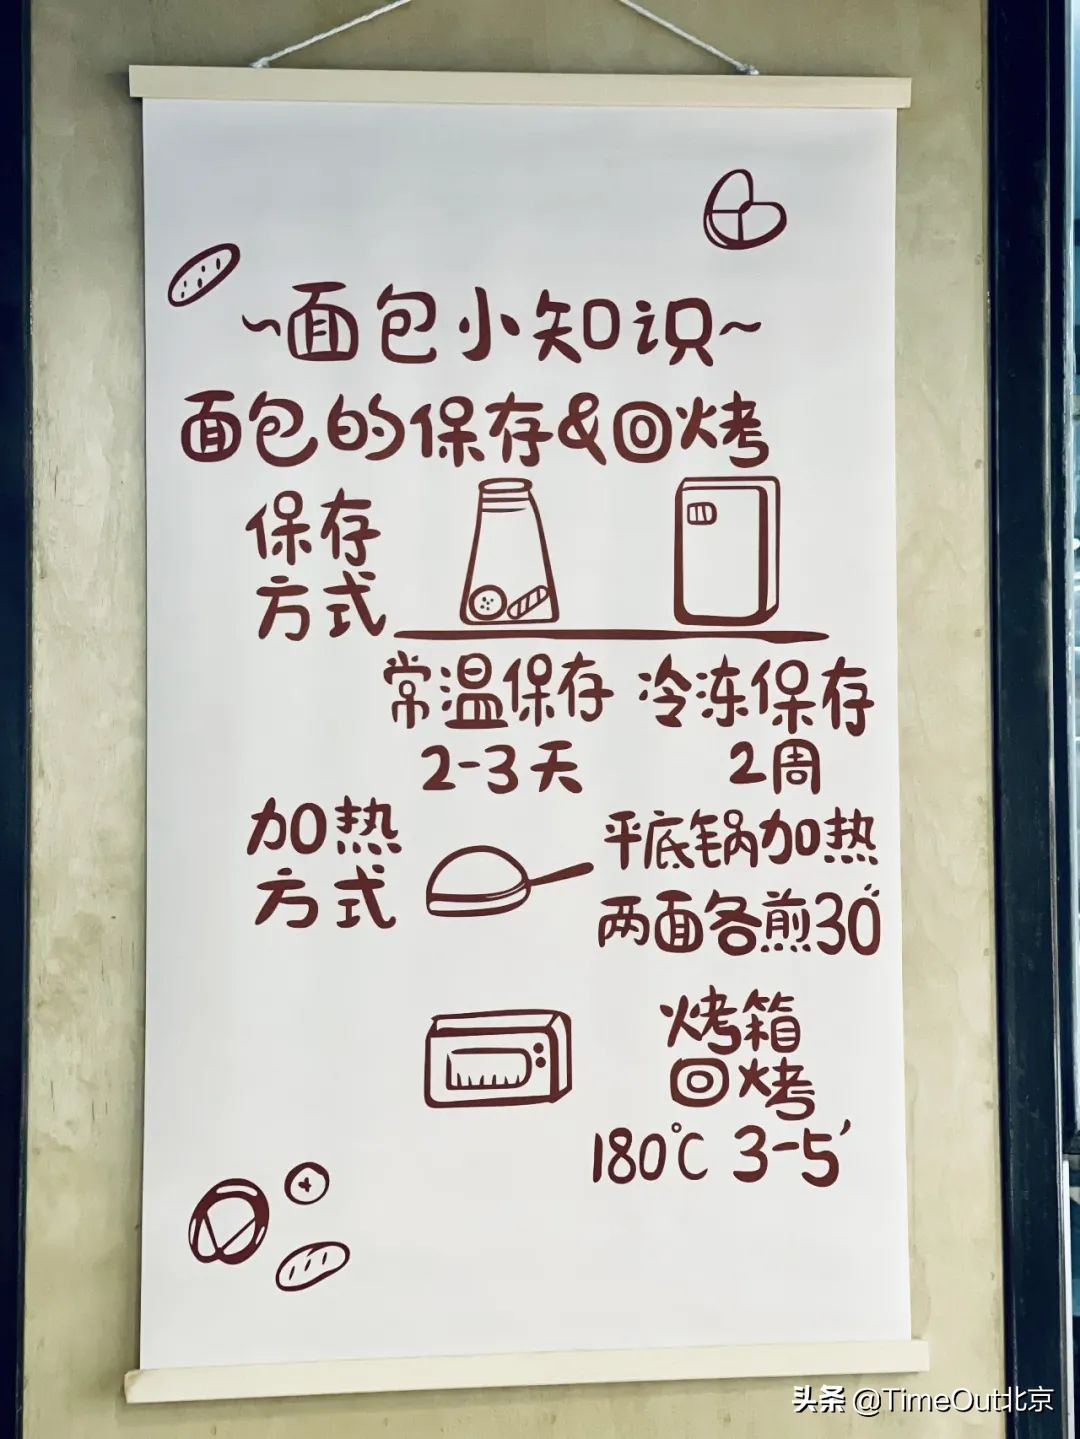 ~面包小知识~
面包的保存&回烤
保存
方式
常温保存 冷冻保存
2-3天 2周
加热
方式
平底锅加热
两面各煎30″
烤箱
回烤
180℃ 3-5′
头条 @TimeOut北京